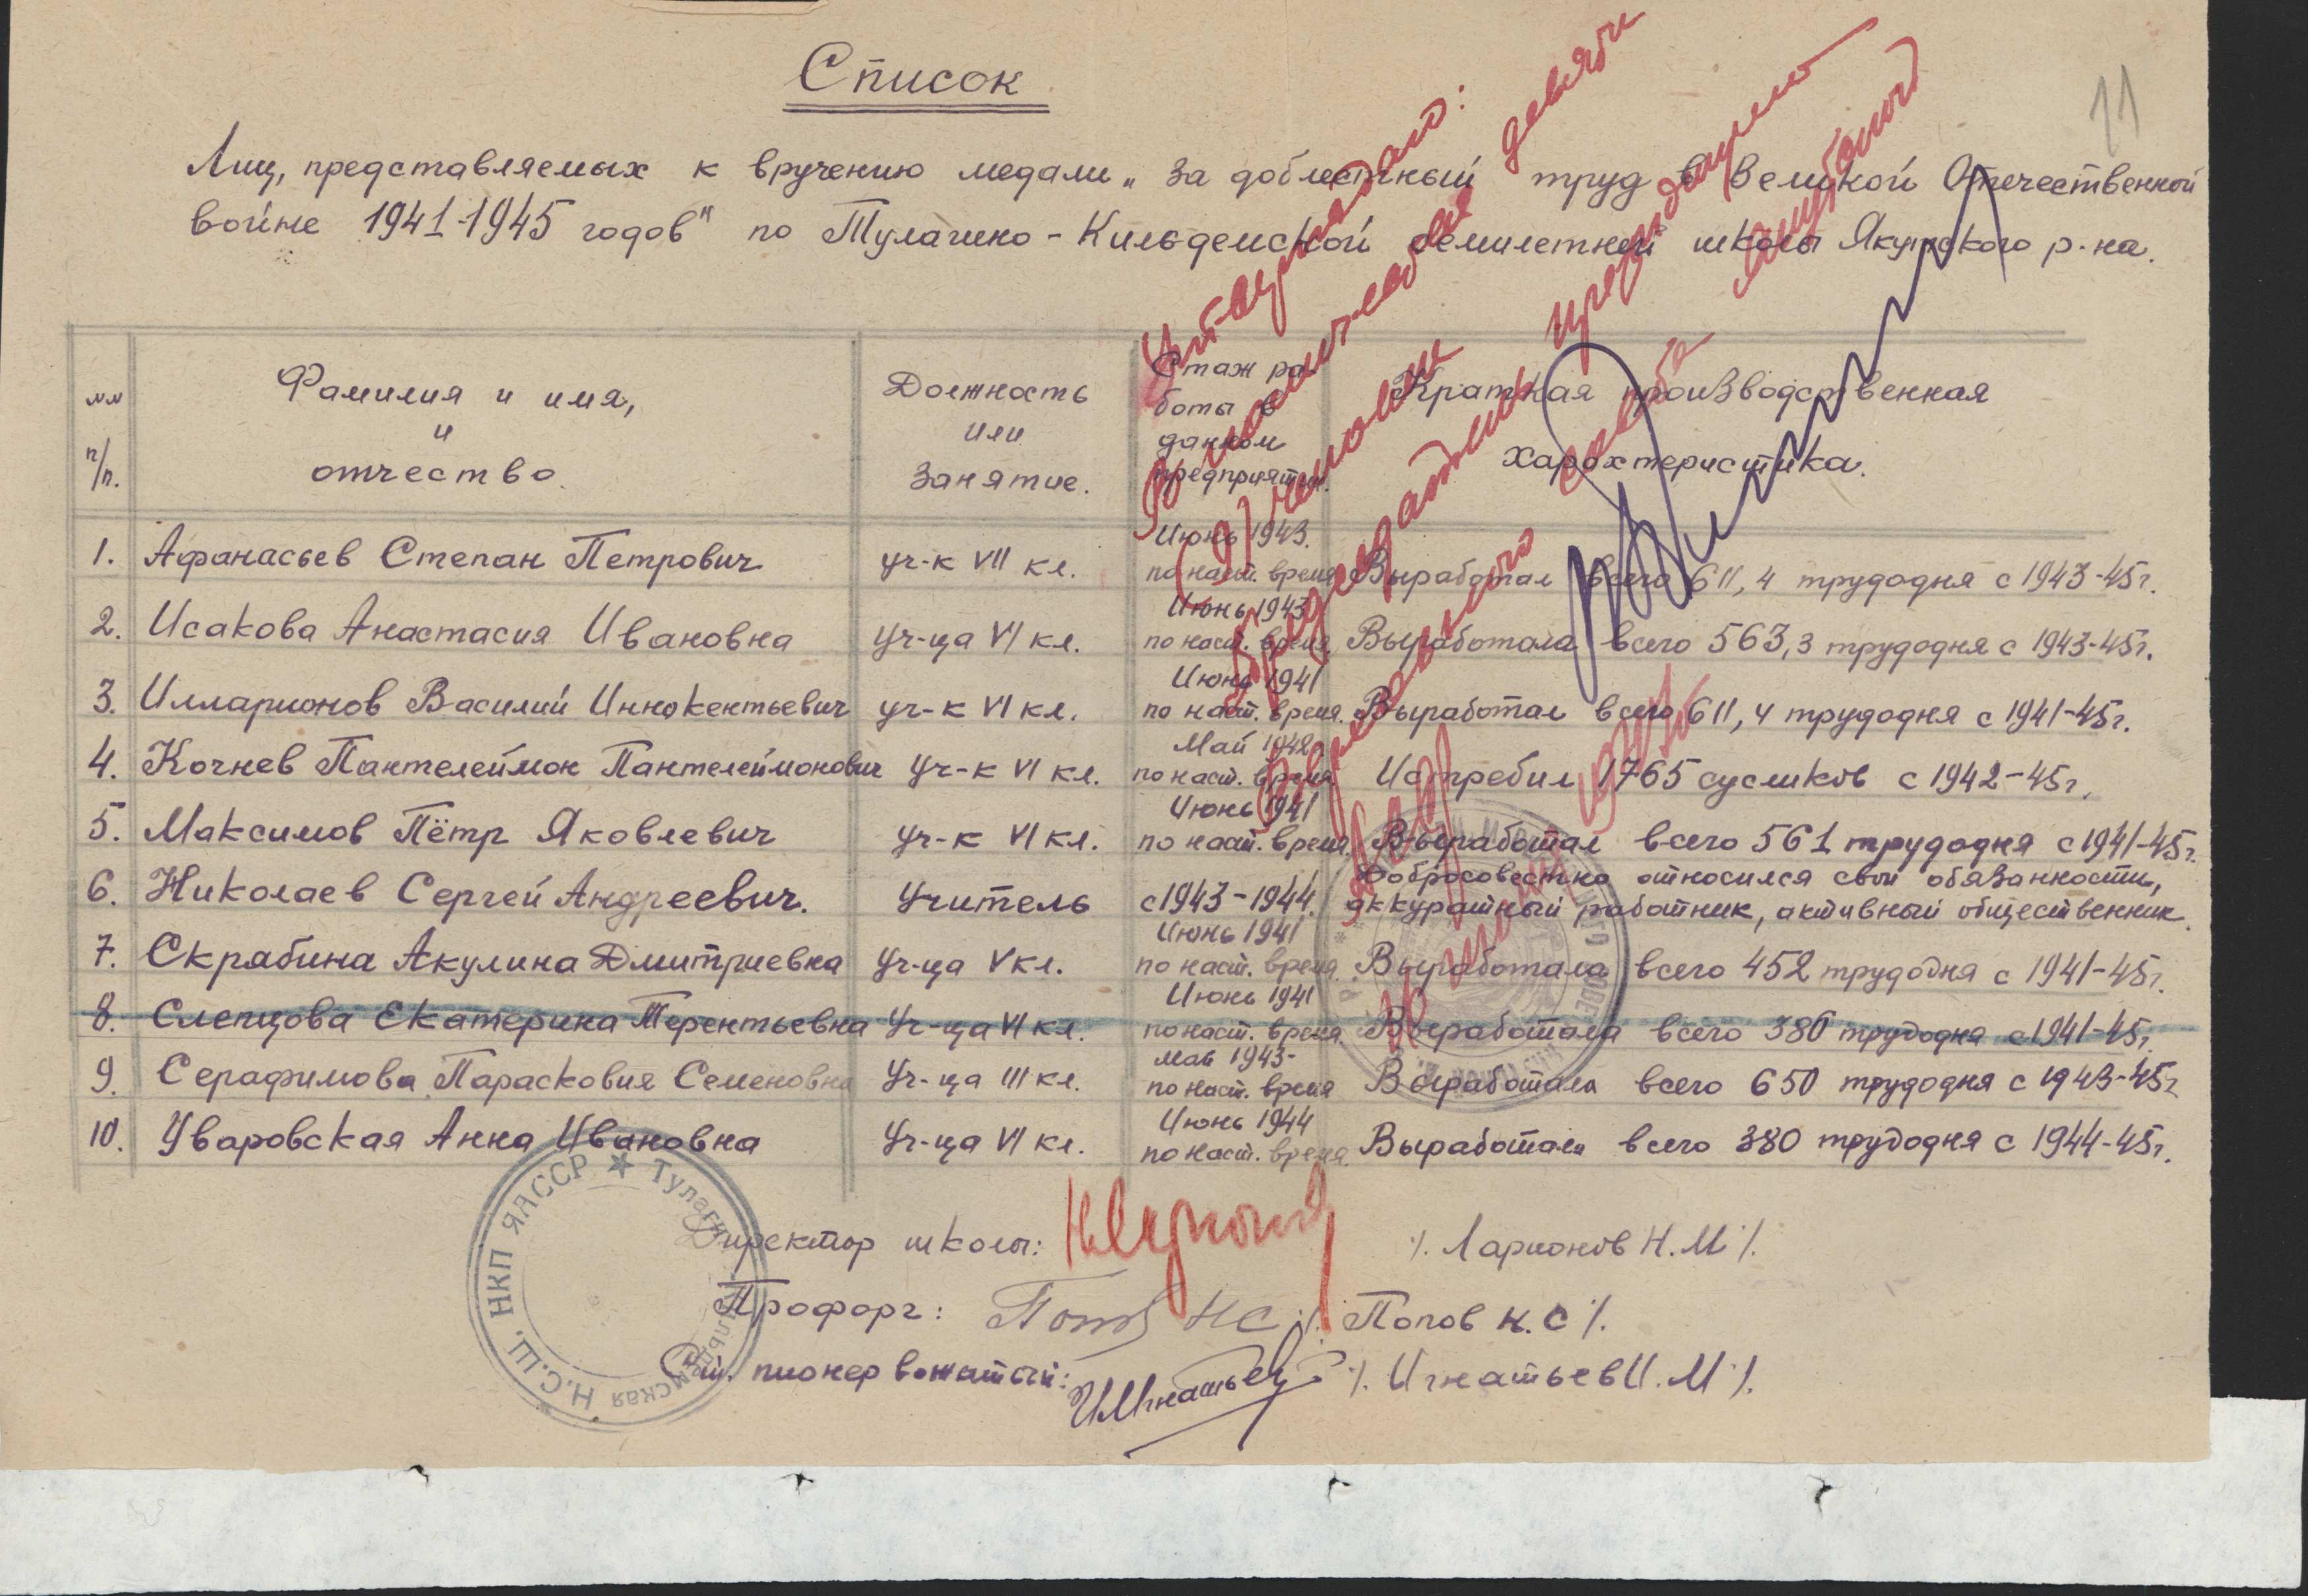 11
Список
Лиц, представляемых к вручению медали „За доблестный труд в Великой Отечественной
войне 1941-1945 годов" по Тулагино-Кильдемской семилетней школы Якутского р-на.
Утверждаю:
в количестве девяти
(9) человек
Председатель президиума
Верховного совета
№№ п/п. Фамилия и имя, и отчество. Должность или занятие. Стаж работы в данном предприятии. Краткая производственная характеристика.
1. Афанасьев Степан Петрович уч-к VII кл. Июнь 1943. по наст. время Выработал всего 611,4 трудодня с 1943-45г.
2. Исакова Анастасия Ивановна уч-ца VI кл. Июнь 1943 по наст. время. Выработала всего 563,3 трудодня с 1943-45г.
3. Илларионов Василий Иннокентьевич уч-к VI кл. Июнь 1941 по наст. время. Выработал всего 611,4 трудодня с 1941-45г.
4. Кочнев Пантелеймон Пантелеймонович уч-к VI кл. Май 1942 по наст. время Истребил 1765 сусликов с 1942-45г.
5. Максимов Пётр Яковлевич уч-к VI кл. Июнь 1941 по наст. время Выработал всего 561 трудодня с 1941-45г.
6. Николаев Сергей Андреевич. Учитель с 1943-1944. Добросовестно относился свои обязанности, аккуратный работник, активный общественник.
7. Скрябина Акулина Дмитриевна уч-ца V кл. Июнь 1941 по наст. время Выработала всего 452 трудодня с 1941-45г.
8. Слепцова Екатерина Терентьевна уч-ца VI кл. Июнь 1941 по наст. время Выработала всего 386 трудодня с 1941-45г.
9. Серафимова Парасковия Семеновна уч-ца III кл. Май 1943- по наст. время Выработала всего 650 трудодня с 1943-45г
10. Уваровская Анна Ивановна уч-ца VI кл. Июнь 1944 по наст. время. Выработала всего 380 трудодня с 1944-45г.
Директор школы: /. Ларионов Н.М /.
Профорг: Попов НС /. Попов Н.С /.
Ст. пионер вожатый: ИИгнатьев /. Игнатьев И.М /.
Н.С.Ш. НКП ЯАССР ★ Тулагино-Кильдемская